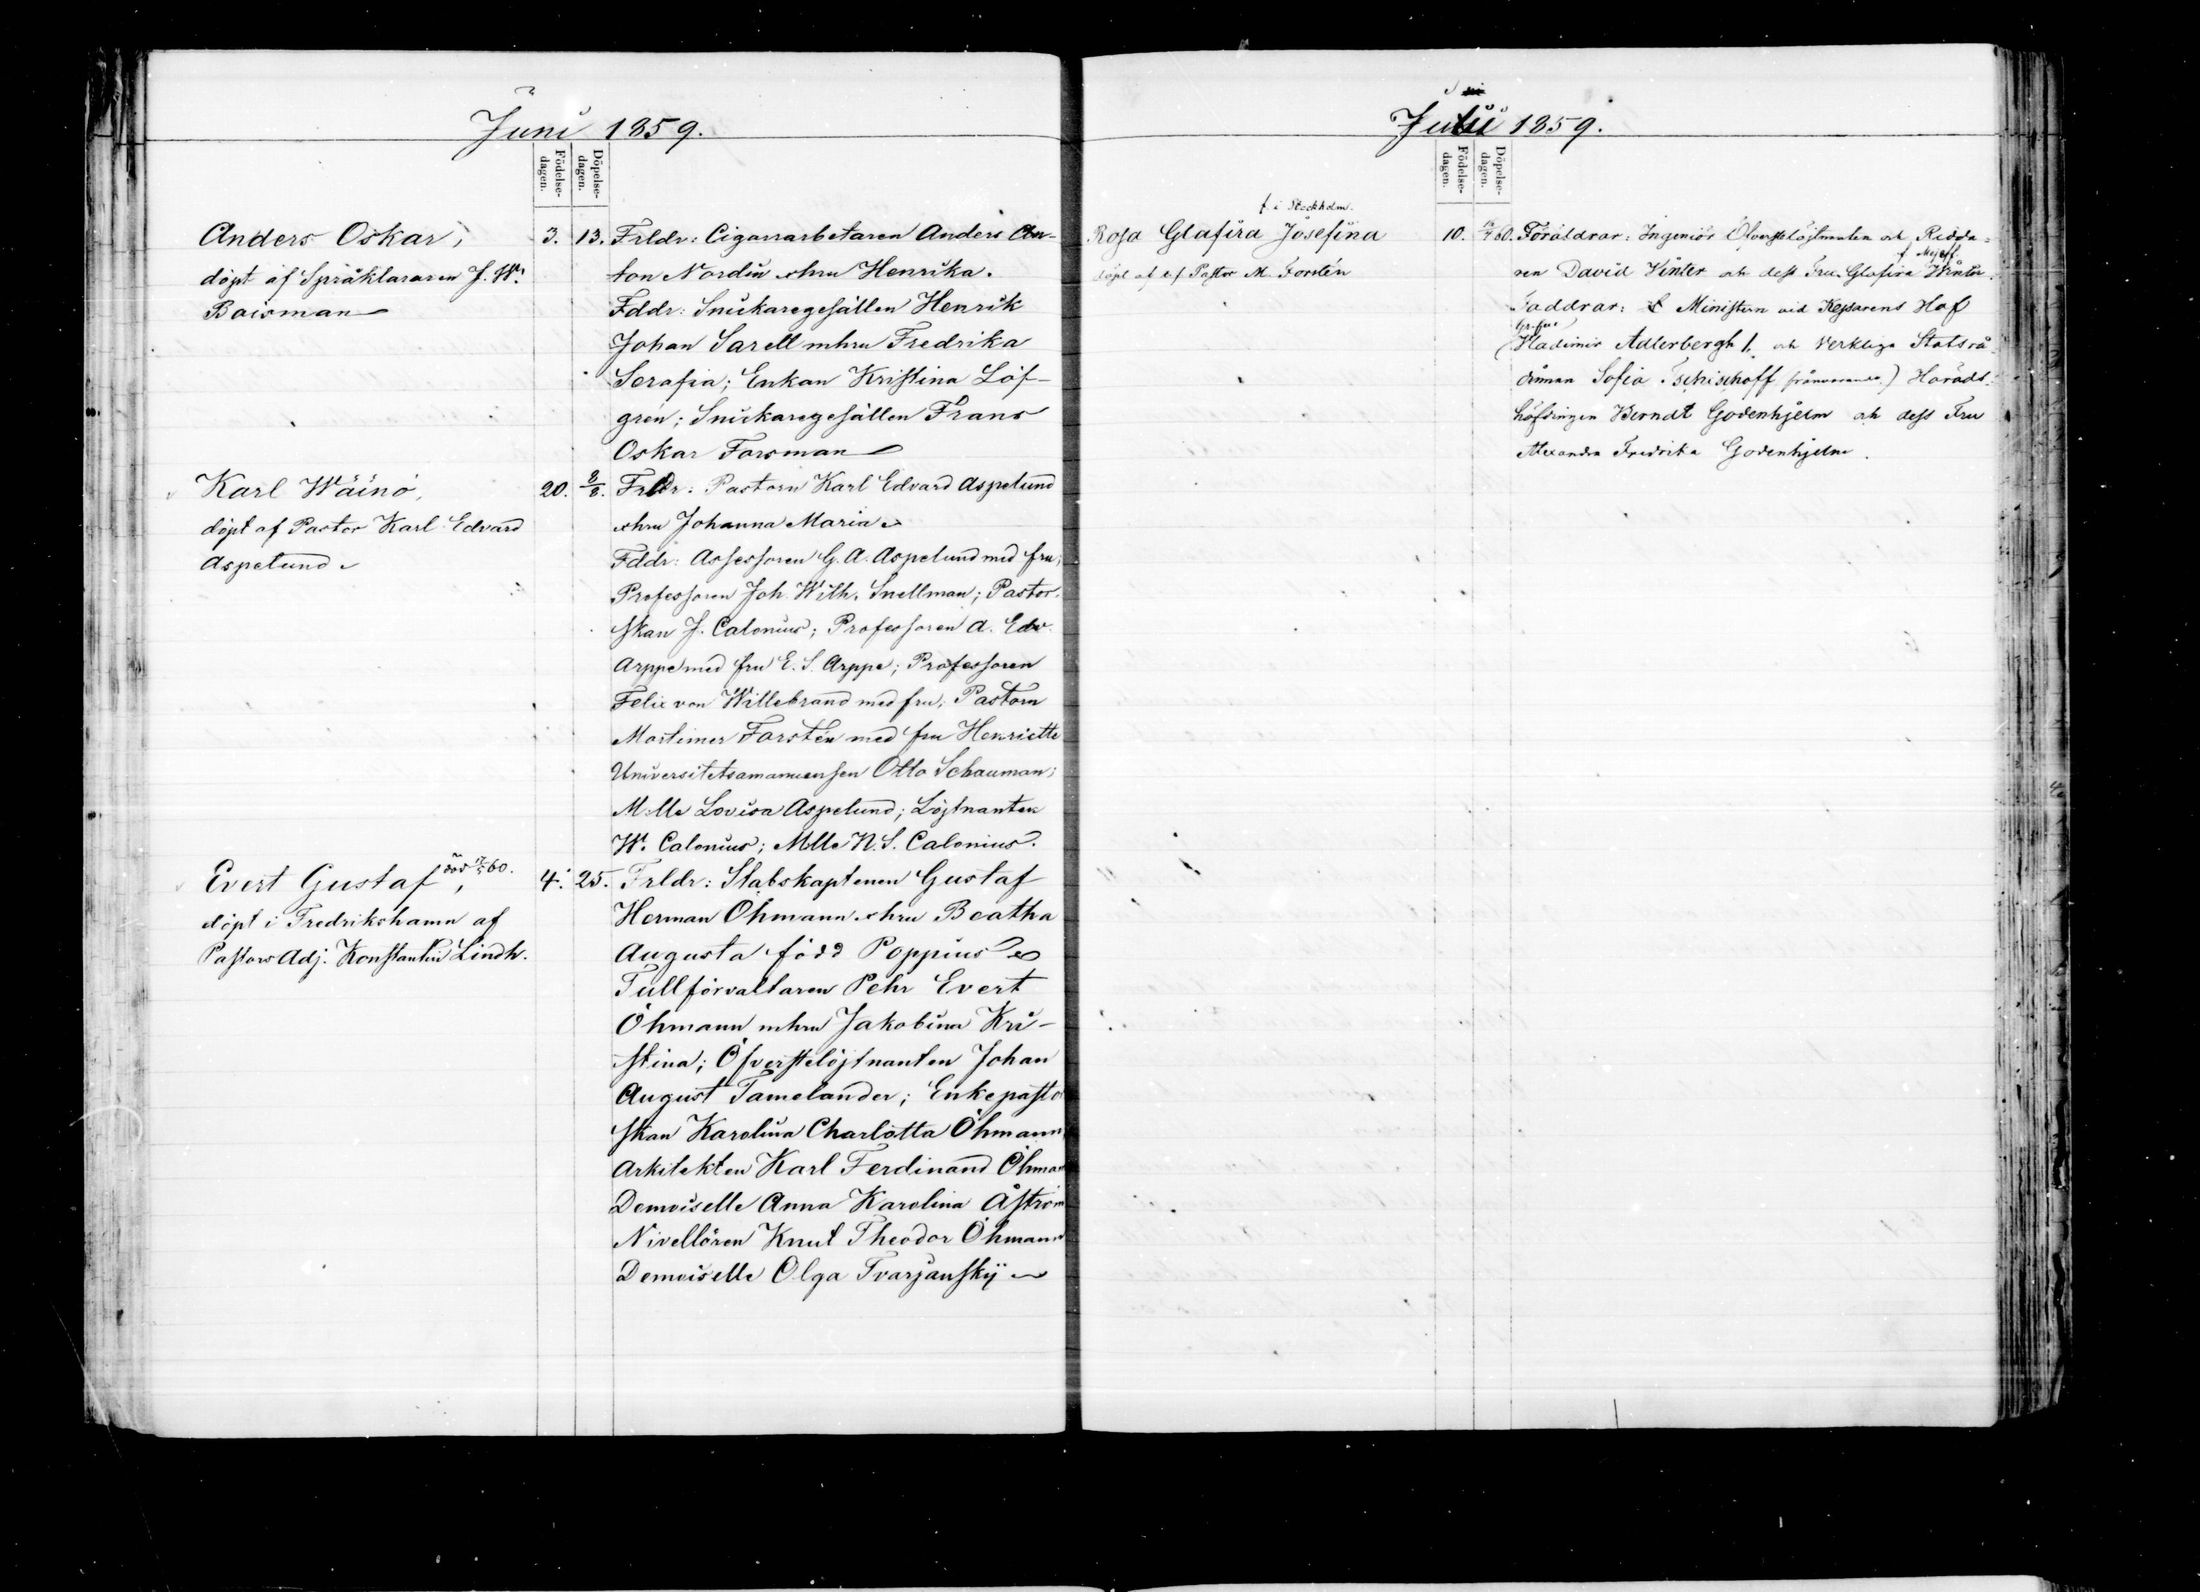 Juni 1859.
Födelse-
dagen.
Döpelse-
dagen.
Anders Oskar,
döpt af Språkläraren J. W.
Boisman
3. 13. Frldr: Cigarrarbetaren Anders An-
ton Nordin o hru Henrika.
Fddr: Snickaregesällen Henrik
Johan Sarell mhru Fredrika
Serafia; Enkan Kristina Löf-
gren; Snickaregesällen Frans
Oskar Forsman
Karl Wäinö,
döpt af Pastor Karl Edvard
Aspelund
20. 2/8. Frldr: Pastorn Karl Edvard Aspelund
o hru Johanna Maria
Fddr: Assessoren G. A. Aspelund med fru;
Professoren Joh. Wilh. Snellman; Pastor-
skan J. Calonius; Professoren A. Edv.
Arppe med fru E. S. Arppe; Professoren
Felix von Willebrand med fru; Pastorn
Mortimer Forstén med fru Henriette
Universitetsamanuensen Otto Schauman;
Mlle Lovisa Aspelund; Löjtnanten
W. Calonius; Mlle N. S. Calonius.
Evert Gustaf, död 60.
döpt i Fredrikshamn af
Pastors Adj. Konstantin Lindh.
4. 25. Frldr: Stabskaptenen Gustaf
Herman Öhmann o hru Beatha
Augusta född Poppius
Tullförvaltaren Pehr Evert
Öhmann mhru Jakobina Kri-
stina; Öfverstelöjtnanten Johan
August Tamelander; Enkepasto
skan Karolina Charlotta Öhmann
Arkitekten Karl Ferdinand Öhman
Demoiselle Anna Karolina Åström
Nivellören Knut Theodor Öhmann
Demoiselle Olga Tvarjansky
Juli 1859.
Födelse-
dagen.
Döpelse-
dagen.
f. i Stockholm.
Rosa Glafira Josefina
döpt af Pastor M. Forstén
10. 60. Föräldrar: Ingeniör Öfverstelöjtnanten och Ridda-
ren David Winter och dess Fru Glafira Winter
Faddrar: Ministern vid Kejsarens Hof
Grefve
(Vladimir Adlerbergh 1. och Verkliga Statsrå-
dinnan Sofia Tschischoff frånvarande) Härads-
höfdingen Berndt Godenhjelm och dess Fru
Alexandra Fredrika Godenhjelm.